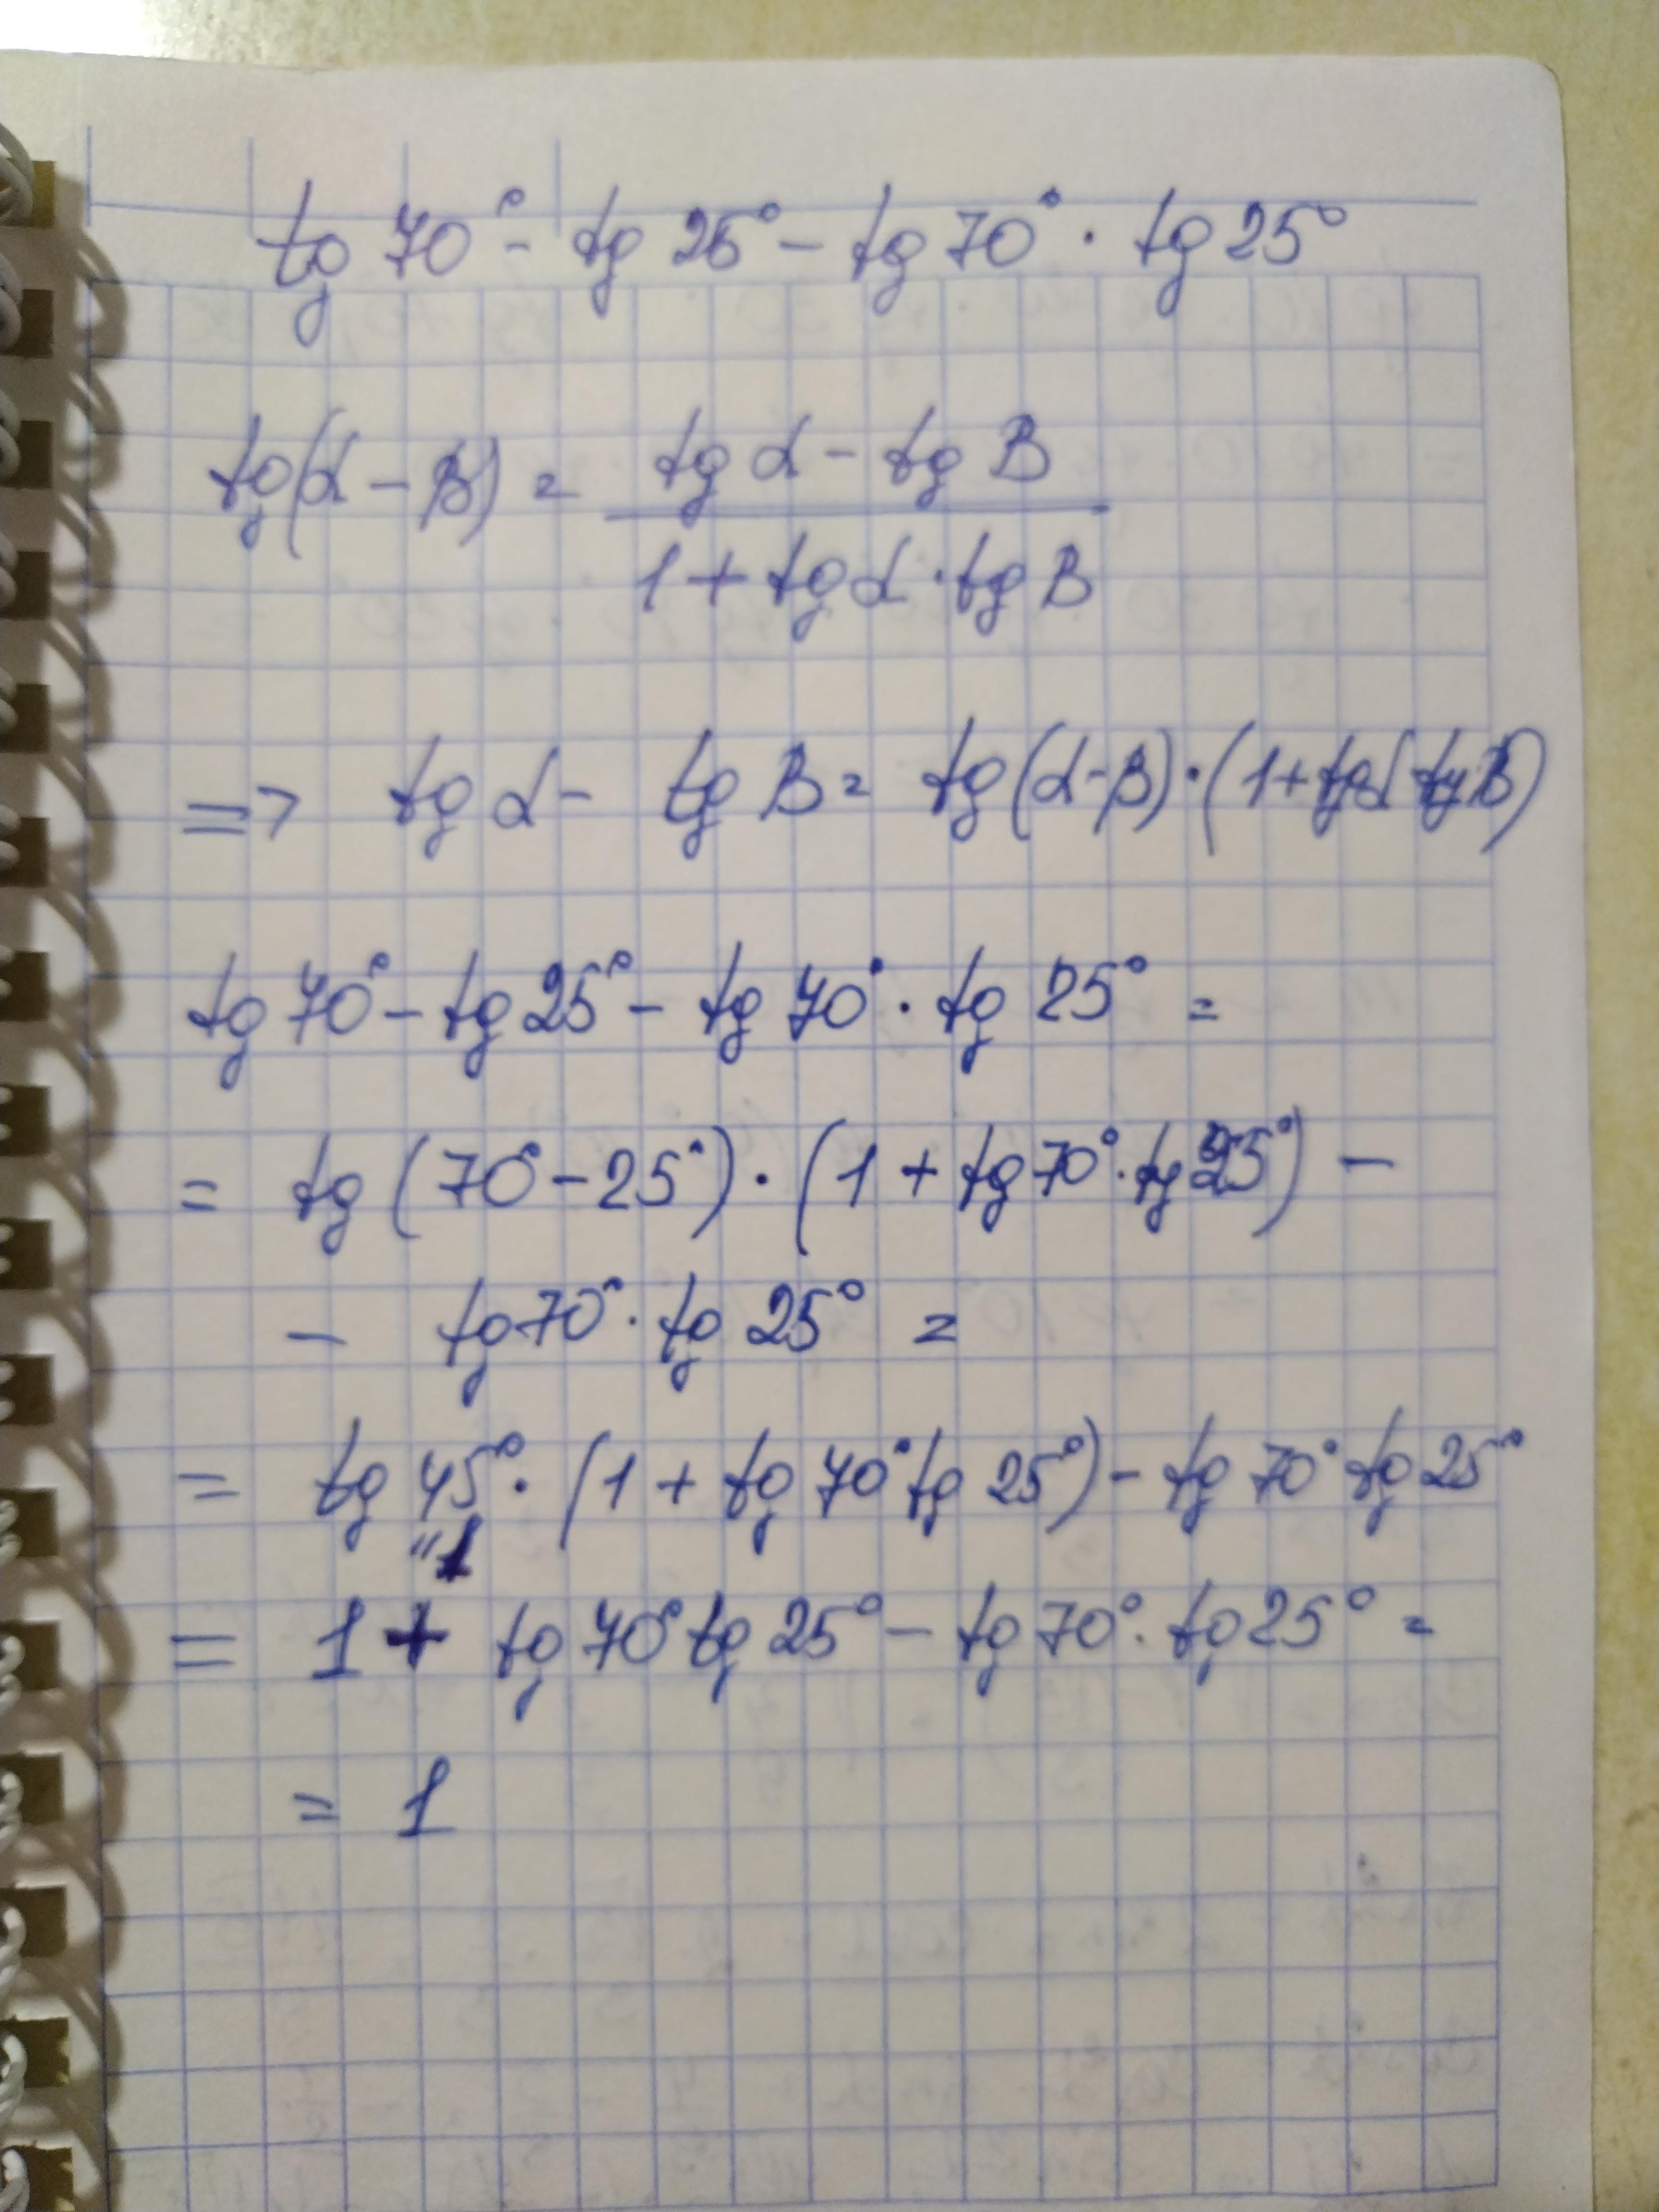 tg 70° - tg 25° - tg 70° · tg 25°
tg(α - β) = tg α - tg β
1 + tg α · tg β
=> tg α - tg β = tg(α-β)·(1+tgα tgβ)
tg 70° - tg 25° - tg 70° · tg 25° =
= tg (70° - 25°) · (1 + tg 70° · tg 25°) -
- tg 70° · tg 25° =
= tg 45° · (1 + tg 70° tg 25°) - tg 70° tg 25°
" 1
= 1 + tg 70° tg 25° - tg 70° · tg 25° =
= 1